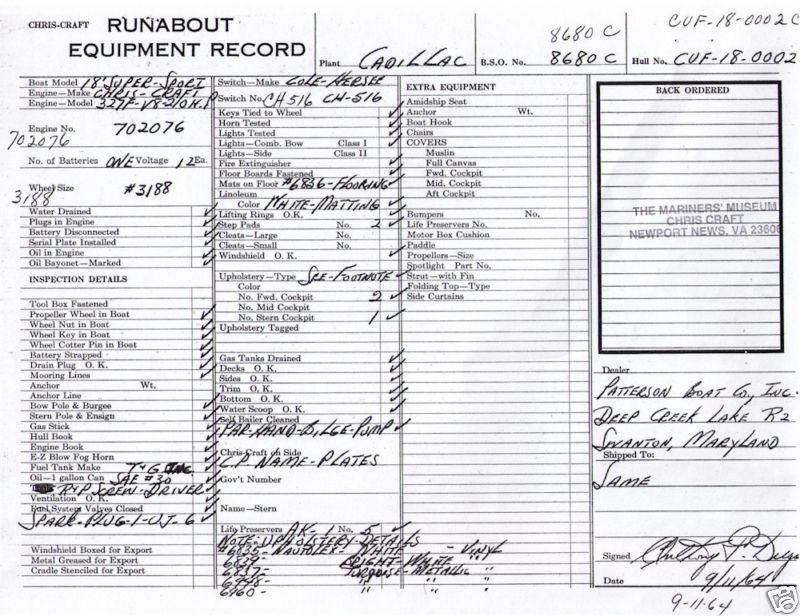 CHRIS-CRAFT RUNABOUT
EQUIPMENT RECORD
Plant CADILLAC
8680 C
B.S.O. No. 8680 C
CUF-18-0002 C
Hull No. CUF-18-0002
Boat Model 18' SUPER-SPORT
Engine—Make CHRIS-CRAFT
Engine—Model 327F-V8-210H.P
Engine No. 702076
702076
No. of Batteries ONE Voltage 12 Ea.
Wheel Size #3188
3188
Water Drained
Plugs in Engine
Battery Disconnected
Serial Plate Installed
Oil in Engine
Oil Bayonet—Marked
INSPECTION DETAILS
Tool Box Fastened
Propeller Wheel in Boat
Wheel Nut in Boat
Wheel Key in Boat
Wheel Cotter Pin in Boat
Battery Strapped
Drain Plug O. K.
Mooring Lines
Anchor Wt.
Anchor Line
Bow Pole & Burgee
Stern Pole & Ensign
Gas Stick
Hull Book
Engine Book
E-Z Blow Fog Horn
Fuel Tank Make T+G INC.
Oil—1 gallon Can SAE #30
R+P SCREW-DRIVER
Ventilation O. K.
Fuel System Valves Closed
SPARK-PLUG-1-UJ-6
Windshield Boxed for Export
Metal Greased for Export
Cradle Stenciled for Export
Switch—Make COLE-HERSEE
Switch No. CH516 CH-516
Keys Tied to Wheel
Horn Tested
Lights Tested
Lights—Comb. Bow Class I
Lights—Side Class II
Fire Extinguisher
Floor Boards Fastened
Mats on Floor #6836-FLOORING
Linoleum
Color WHITE-MATTING
Lifting Rings O. K.
Step Pads No. 2
Cleats—Large No.
Cleats—Small No.
Windshield O. K.
Upholstery—Type SEE-FOOTNOTE
Color
No. Fwd. Cockpit 2
No. Mid Cockpit
No. Stern Cockpit 1
Upholstery Tagged
Gas Tanks Drained
Decks O. K.
Sides O. K.
Trim O. K.
Bottom O. K.
Water Scoop O. K.
Self Bailer Cleaned
PAR-HAND-BILGE-PUMP
Chris-Craft on Side
C.P. NAME-PLATES
Gov't Number
Name—Stern
Life Preservers AK-1 No. 5
NOTE-UPHOLSTERY-DETAILS
#6835- NAUTOLEX- WHITE - VINYL
BRIGHT-WHITE "
TURQUOISE-METALLIC "
" "
6960- " "
EXTRA EQUIPMENT
Amidship Seat
Anchor Wt.
Boat Hook
Chairs
COVERS
Muslin
Full Canvas
Fwd. Cockpit
Mid. Cockpit
Aft Cockpit
Bumpers No.
Life Preservers No.
Motor Box Cushion
Paddle
Propellers—Size
Spotlight Part No.
Strut—with Fin
Folding Top—Type
Side Curtains
BACK ORDERED
THE MARINERS' MUSEUM
CHRIS CRAFT
NEWPORT NEWS, VA 23606
Dealer
PATTERSON BOAT CO., INC.
DEEP CREEK LAKE R2
SWANTON, MARYLAND
Shipped To:
SAME
Signed
Date 9/11/64
9-11-64